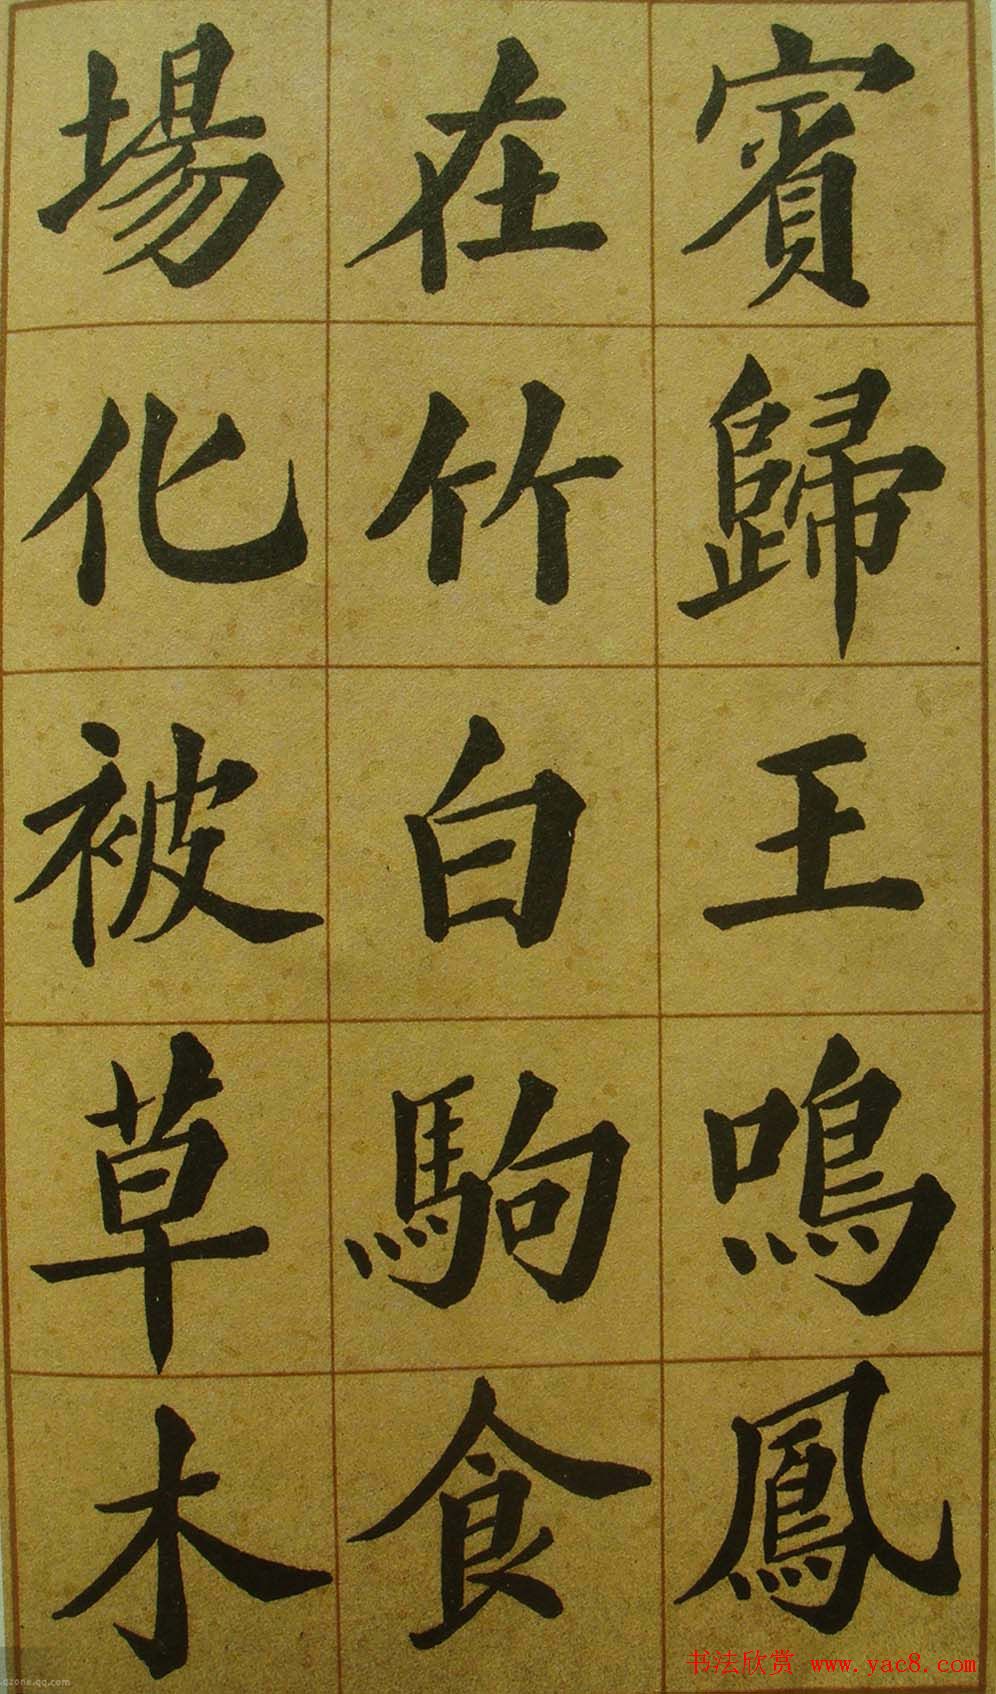 賓歸王鳴鳳
在竹白駒食
場化被草木
书法欣赏 www.yac8.com
qzone.qq.com